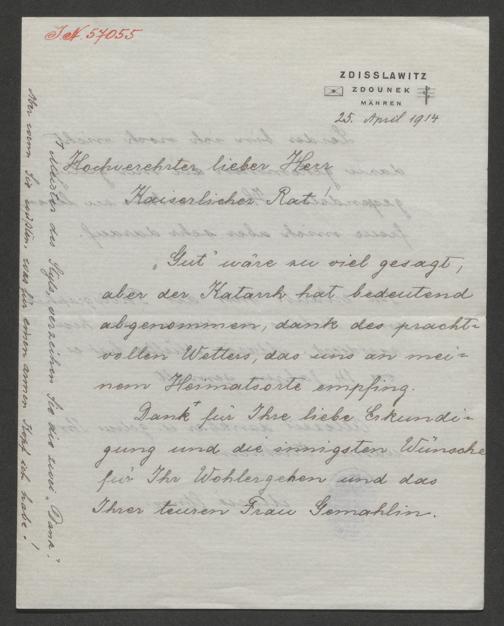 I.N. 57055
ZDISSLAWITZ
ZDOUNEK
MÄHREN
25. April 1914
Hochverehrter lieber Herr
Kaiserlicher Rat!
„Gut“ wäre zu viel gesagt,
aber der Katarrh hat bedeutend
abgenommen, dank des pracht-
vollen Wetters, das uns an mei-
nem Heimatsorte empfing.
Dank+ für Ihre liebe Erkundi-
gung und die innigsten Wünsche
für Ihr Wohlergehen und das
Ihrer teuren Frau Gemahlin.
+ Meister des Styls, verzeihen Sie die zwei „Dank“.
Aber wenn Sie wüßten was für einen armen Kopf ich habe!